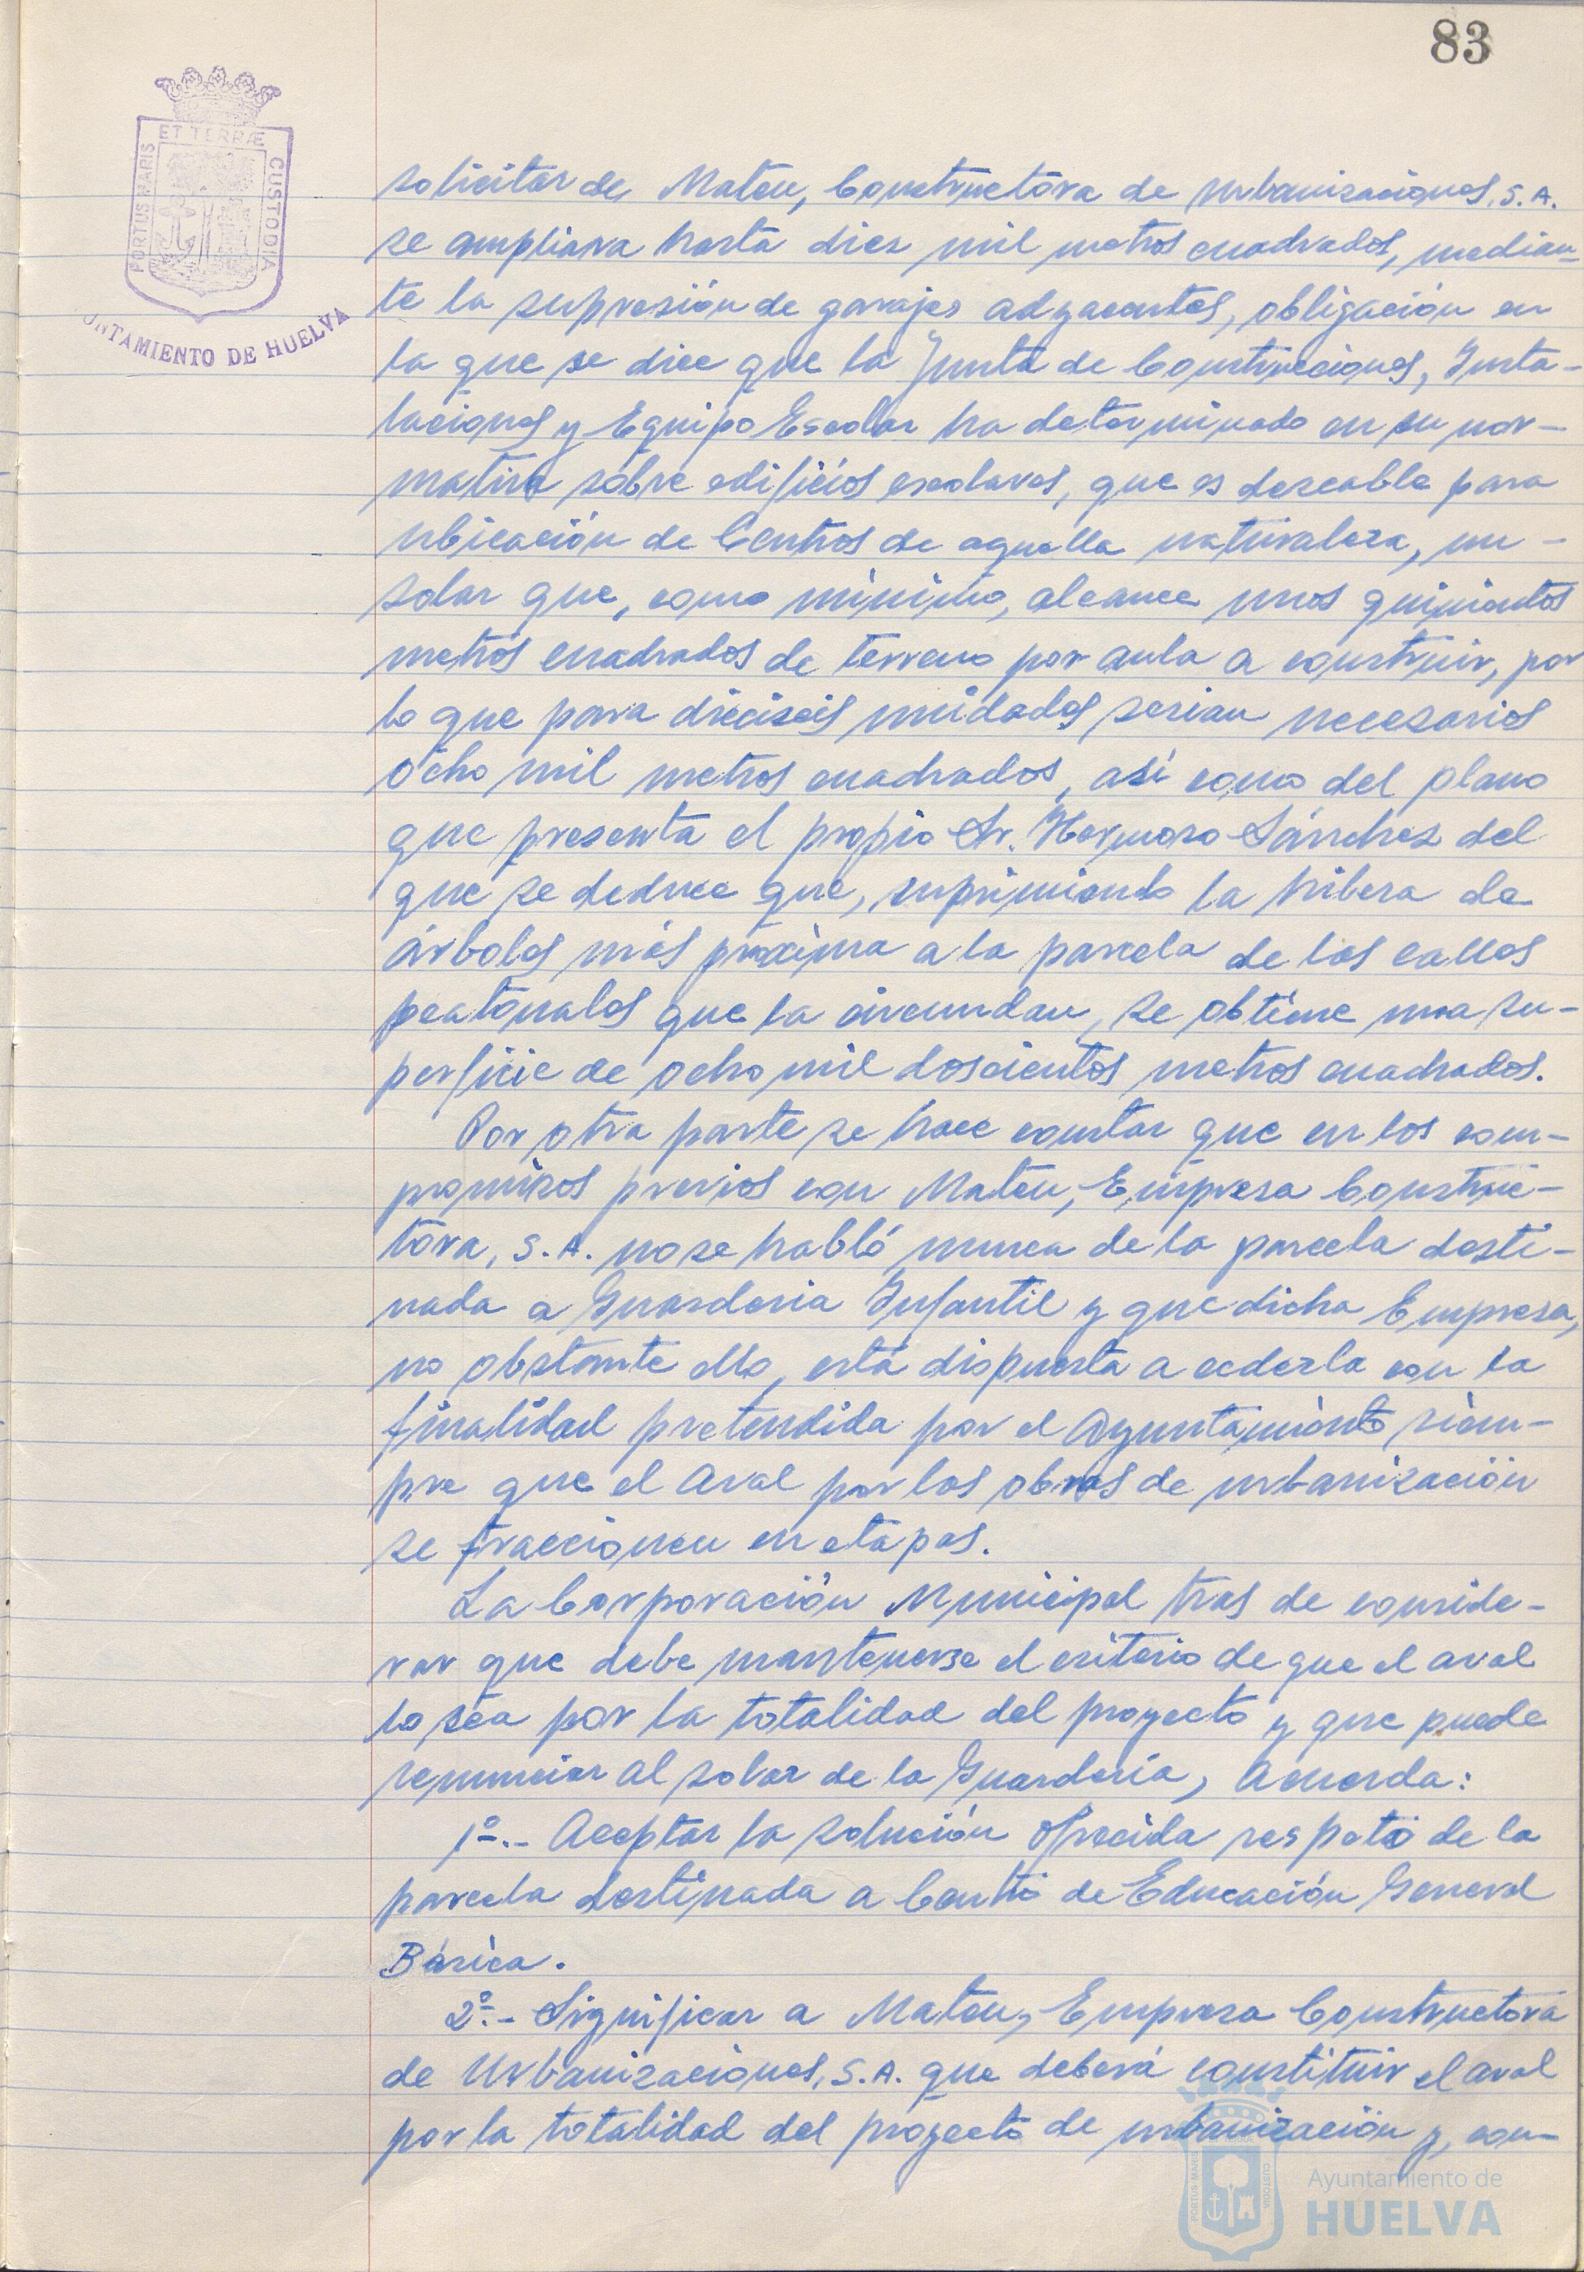 83
ET TERRÆ
PORTUS MARIS
CUSTODIA
UNTAMIENTO DE HUELVA
solicitar de Mateu, Constructora de Urbanizaciones, S.A.
se ampliara hasta diez mil metros cuadrados, median-
te la supresión de garajes adyacentes, obligación en
la que se dice que la Junta de Construcciones, Insta-
laciones y Equipo Escolar ha determinado en su nor-
mativa sobre edificios escolares, que es deseable para
ubicación de Centros de aquella naturaleza, un -
solar que, como mínimo, alcance unos quinientos
metros cuadrados de terreno por aula a construir, por
lo que para dieciseis unidades serian necesarios
ocho mil metros cuadrados, así como del plano
que presenta el propio Sr. Hermoso Sánchez del
que se deduce que, suprimiendo la hilera de
árboles más próxima a la parcela de las calles
peatonales que la circundan, se obtiene una su-
perficie de ocho mil doscientos metros cuadrados.
Por otra parte se hace constar que en los com-
promisos previos con Mateu, Empresa Construc-
tora, S.A. no se habló nunca de la parcela desti-
nada a Guarderia Infantil y que dicha Empresa,
no obstante ello, está dispuesta a cederla con la
finalidad pretendida por el Ayuntamiento siem-
pre que el Aval por las obras de urbanización
se fraccionen en etapas.
La Corporación Municipal tras de conside-
rar que debe mantenerse el criterio de que el aval
lo sea por la totalidad del proyecto y que puede
renunciar al solar de la Guardería, Acuerda:
1º.- Aceptar la solución ofrecida respeto de la
parcela destinada a Centro de Educación General
Básica.
2º.- Significar a Mateu, Empresa Constructora
de Urbanizaciones, S.A. que deberá constituir el aval
por la totalidad del proyecto de urbanización y, con-
PORTUS MARIS
CUSTODIA
Ayuntamiento de
HUELVA